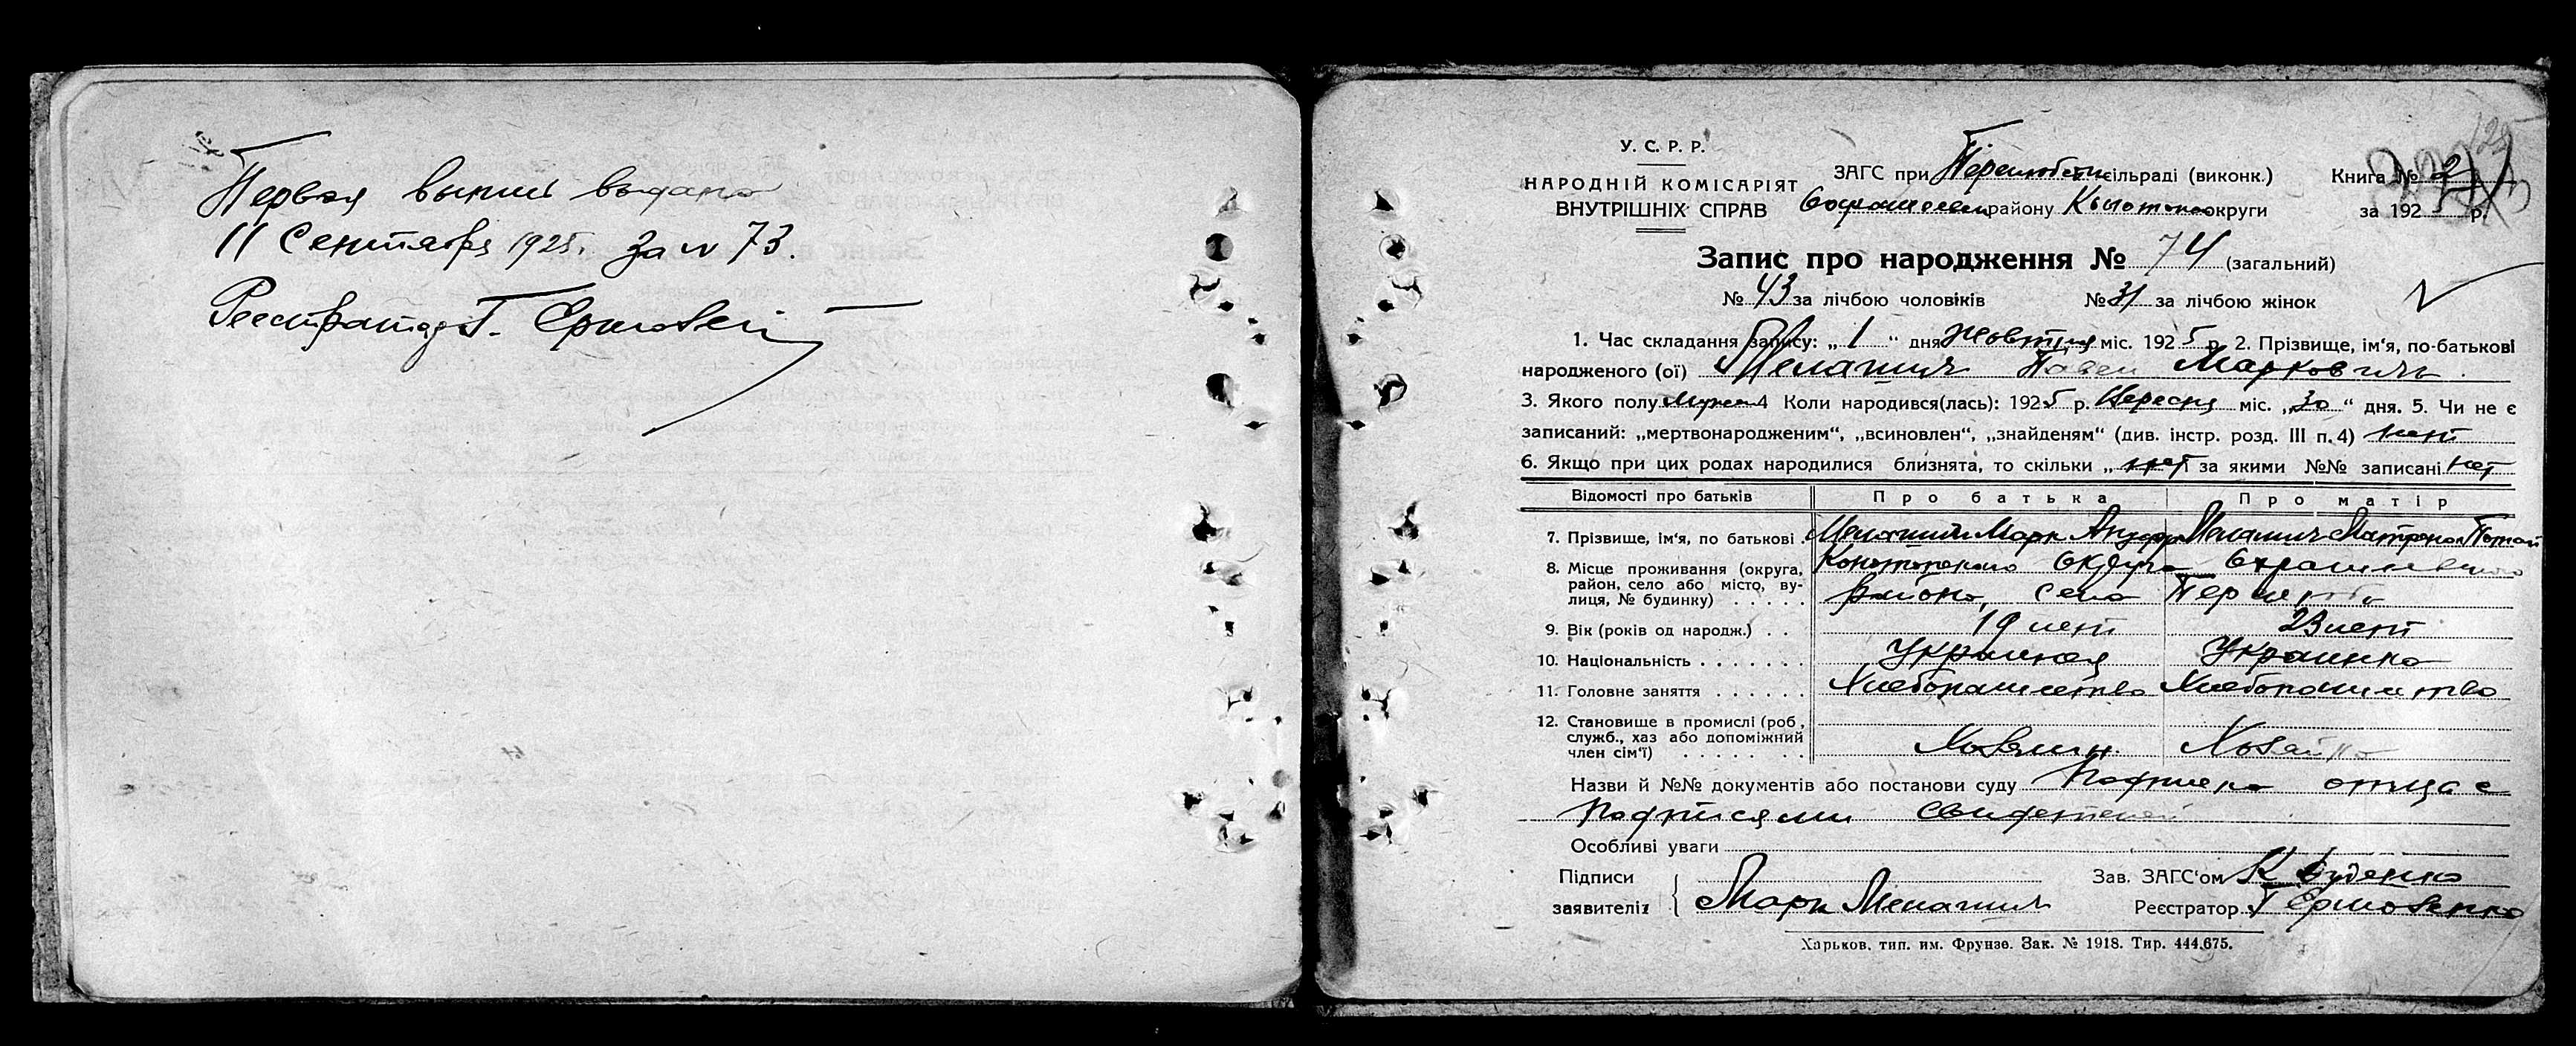 Первая выпись выдана
11 Сентября 1925. за № 73.
Реестратор Г.
У. С. Р. Р.
НАРОДНІЙ КОМІСАРІЯТ
ВНУТРІШНІХ СПРАВ
ЗАГС при сільраді (виконк.)
району округи
Книга № 2
за 192 р.
Запис про народження № 74 (загальний)
№ 43 за лічбою чоловіків № 31 за лічбою жінок
1. Час складання запису: „ 1 “ дня Жовтня міс. 1925 р. 2. Прізвище, ім‘я, по-батькові
народженого (ої) Мелашич Павел Маркович
3. Якого полу Мужск 4 Коли народився(лась): 1925 р. Вересня міс. „30“ дня. 5. Чи не є
записаний: „мертвонародженим“, „всиновлен“, „знайденям“ (див. інстр. розд. III п. 4) нет
6. Якщо при цих родах народилися близнята, то скільки „ нет за якими №№ записані нет
Відомості про батьків Про батька Про матір
7. Прізвище, ім‘я, по батькові Мелашич Марк Мелашич Матрена
8. Місце проживання (округа,
район, село або місто, ву-
лиця, № будинку)
Конотопского Округа
района, село
9. Вік (років од народж.) 19 лет 23 лет
10. Національність Украинец Украинка
11. Головне заняття Хлебопашество Хлебопашество
12. Становище в промислі (роб.,
служб., хаз або допоміжний
член сім‘ї)
Хозяин Хозайка
Назви й №№ документів або постанови суду Подписка отца с
подписями свидетелей
Особливі уваги
Підписи
заявителів Марк Мелашич
Зав. ЗАГС‘ом
Реєстратор
Харьков, тип. им. Фрунзе. Зак. № 1918. Тир. 444.675.